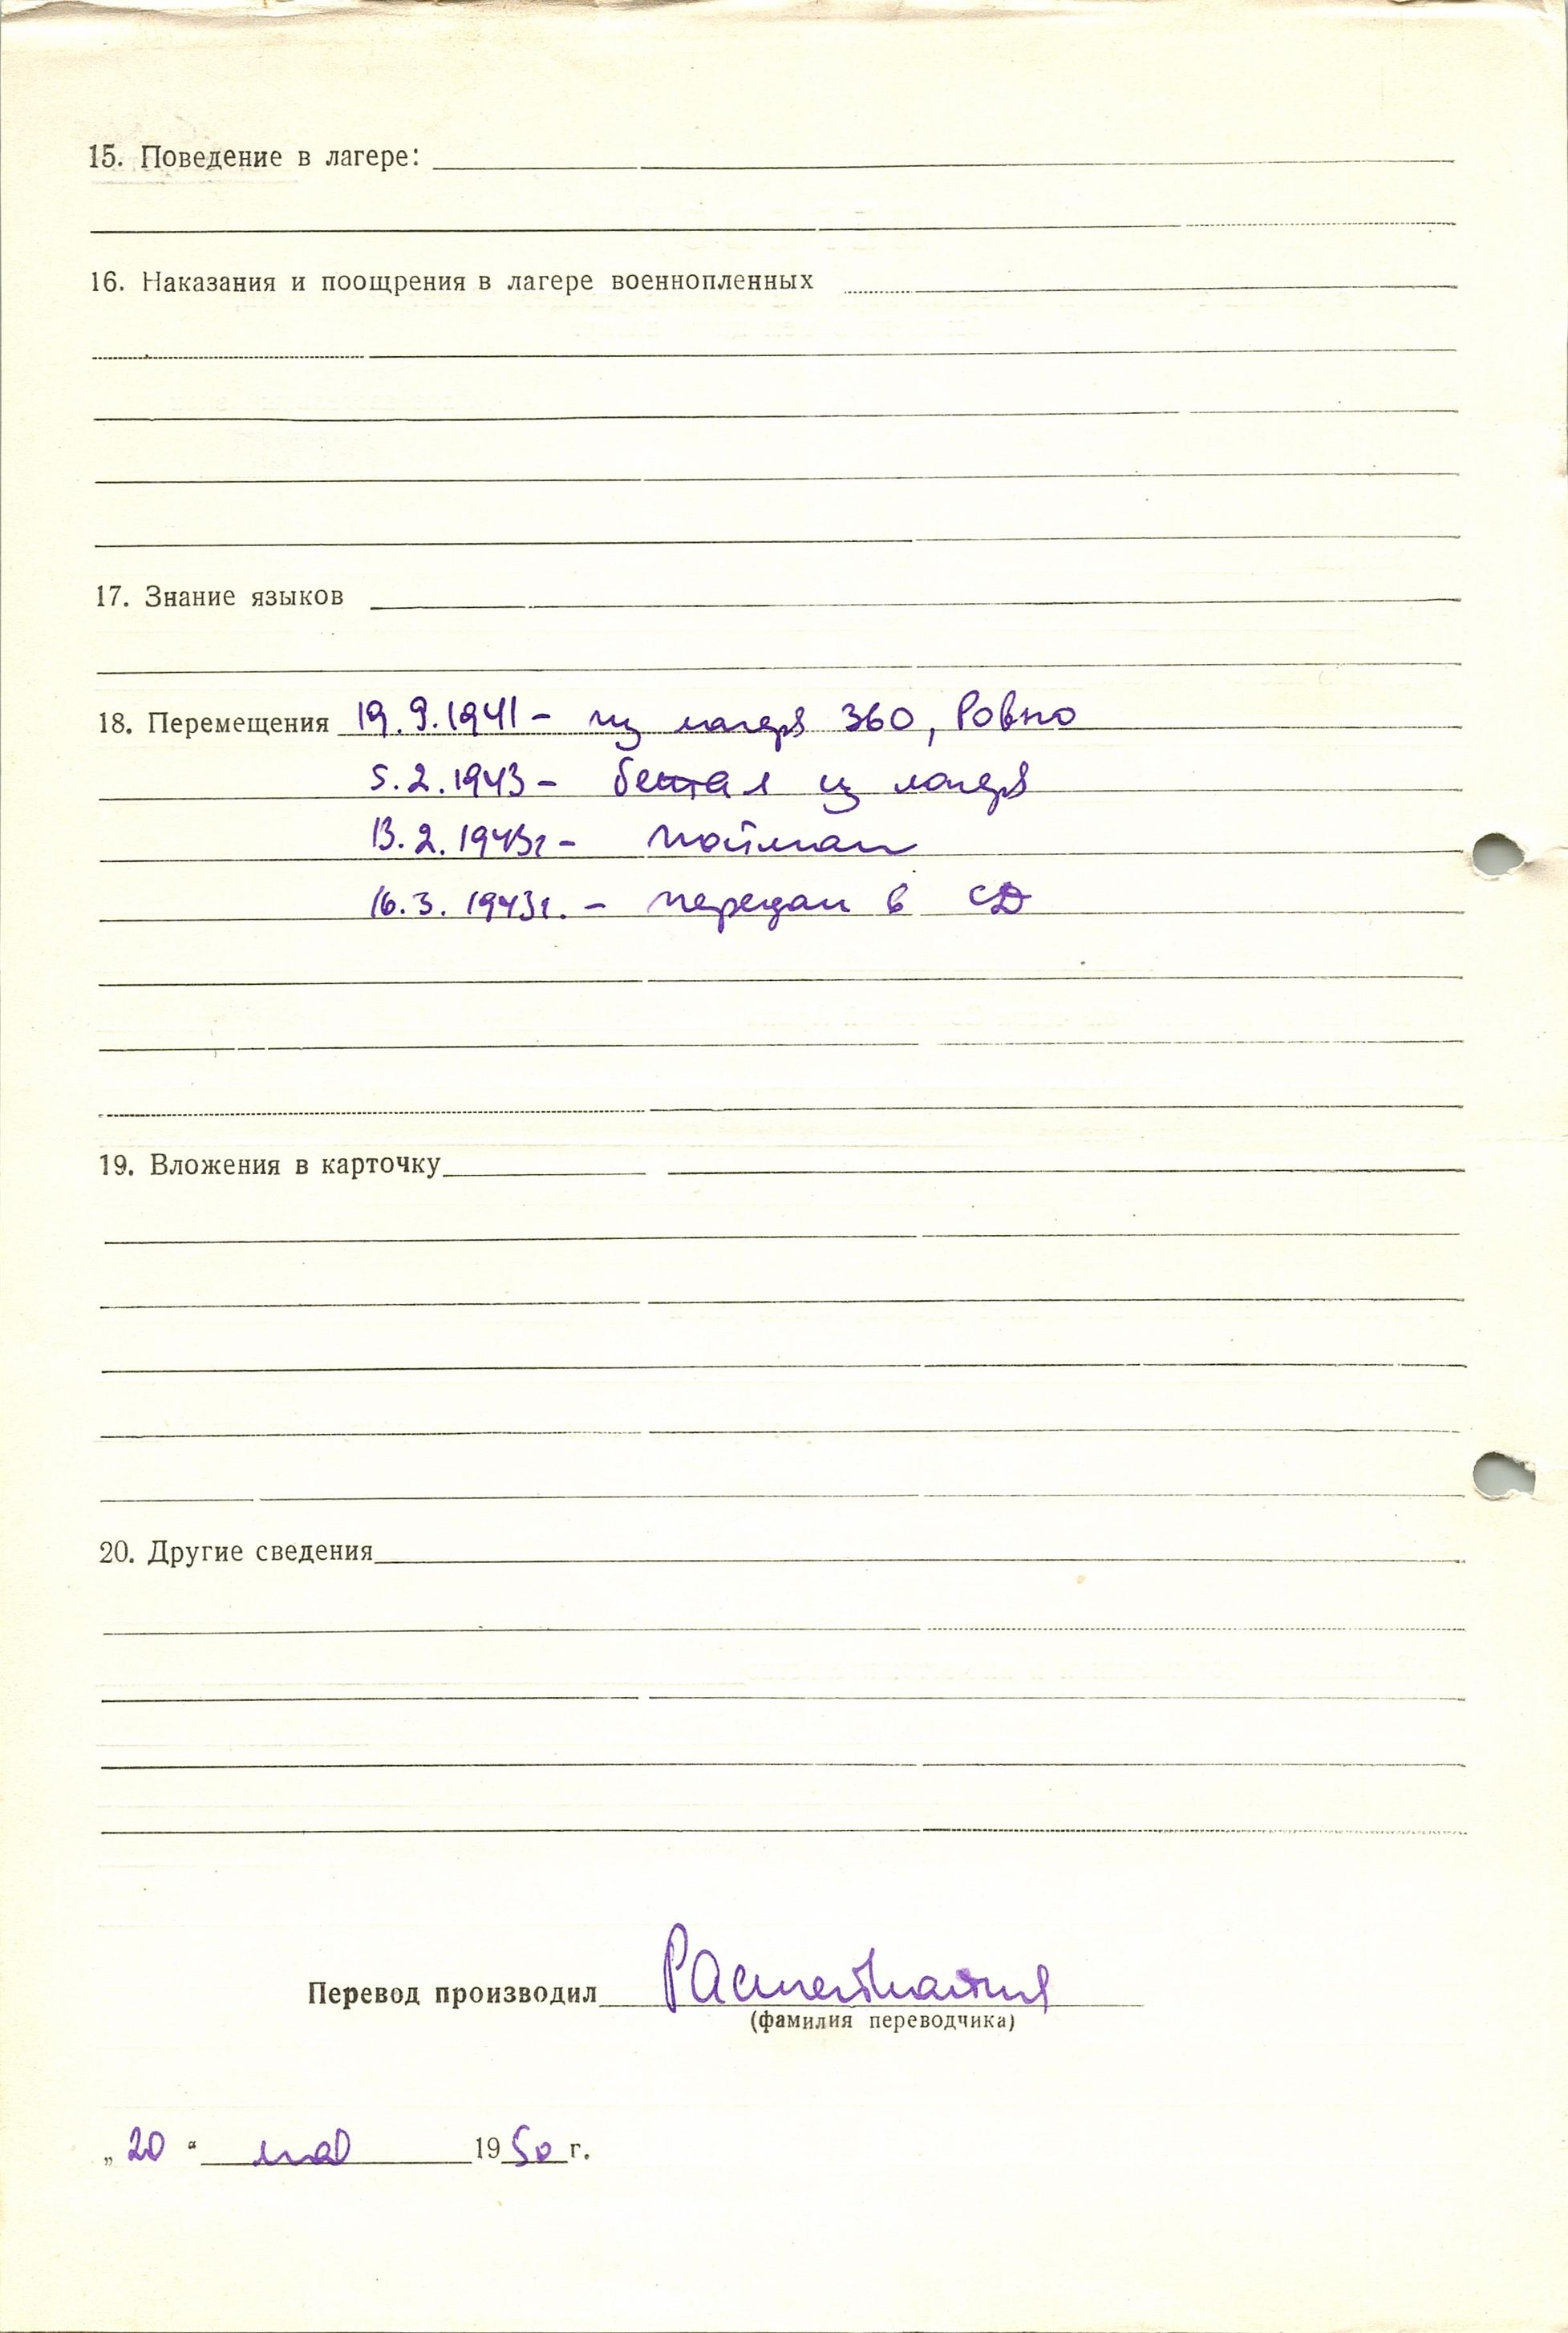 15. Поведение в лагере:
16. Наказания и поощрения в лагере военнопленных
17. Знание языков
18. Перемещения 19.9.1941 - из лагеря 360, Ровно
5.2.1943 - бежал из лагеря
13.2.1943г - пойман
16.3.1943г. - передан в СД
19. Вложения в карточку
20. Другие сведения
Перевод производил
(фамилия переводчика)
„20“ мая 1950 г.